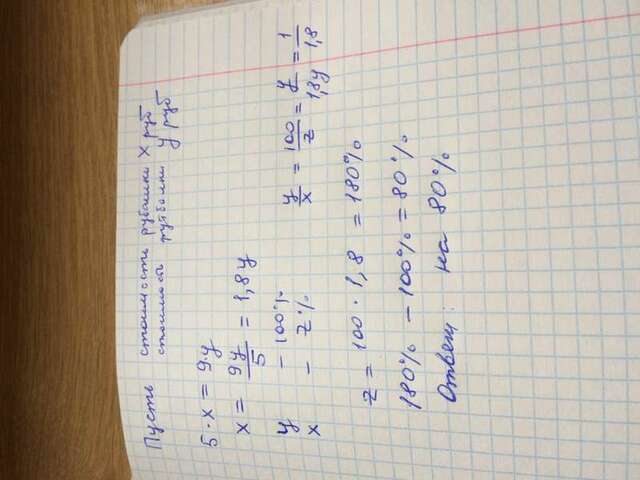 Пусть стоимость рубашки x руб
стоимость футболки y руб
5 · x = 9 · y
x = 9y/5 = 1,8y
y – 100%
x – z%
y/x = 100/z = y/1,8y = 1/1,8
z = 100 · 1,8 = 180%
180% – 100% = 80%
Ответ: на 80%